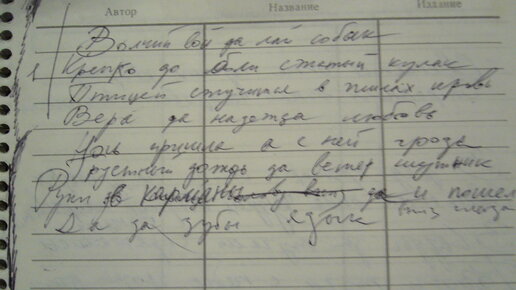 Автор Название Издание
Волчий вой да лай собак
1 Крепко до боли сжатый кулак
Птицей стучится в жилах кровь
Вера да надежда любовь
Ночь пришла а с ней гроза
грустный дождь да ветер шутник
Руки в карманы вниз глаза и пошел
Да за зубы язык